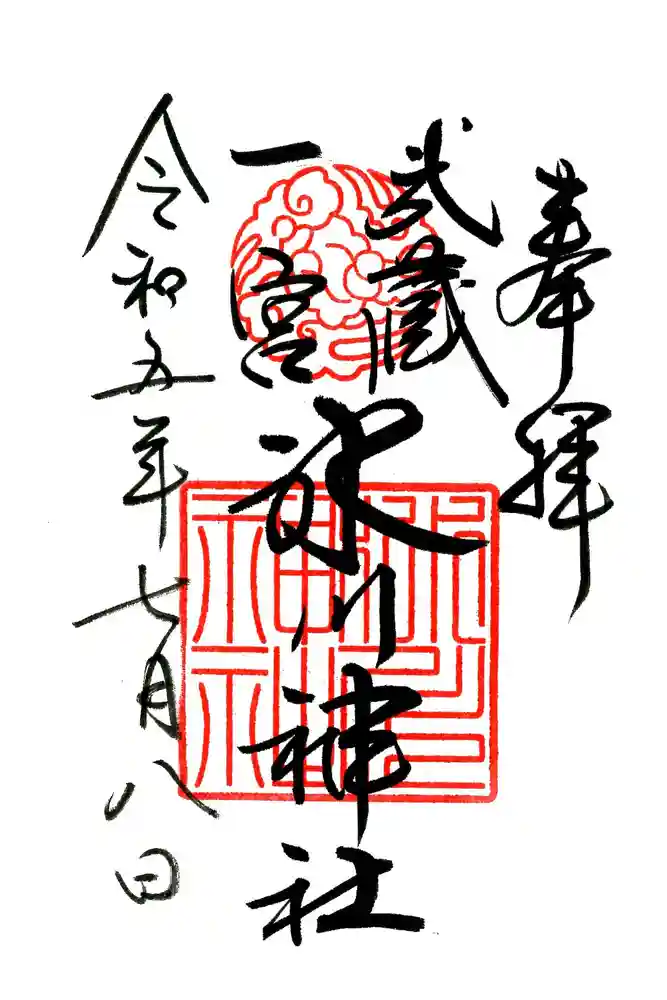 奉拝
武蔵
一宮
氷川神社
令和五年七月八日
氷川神社